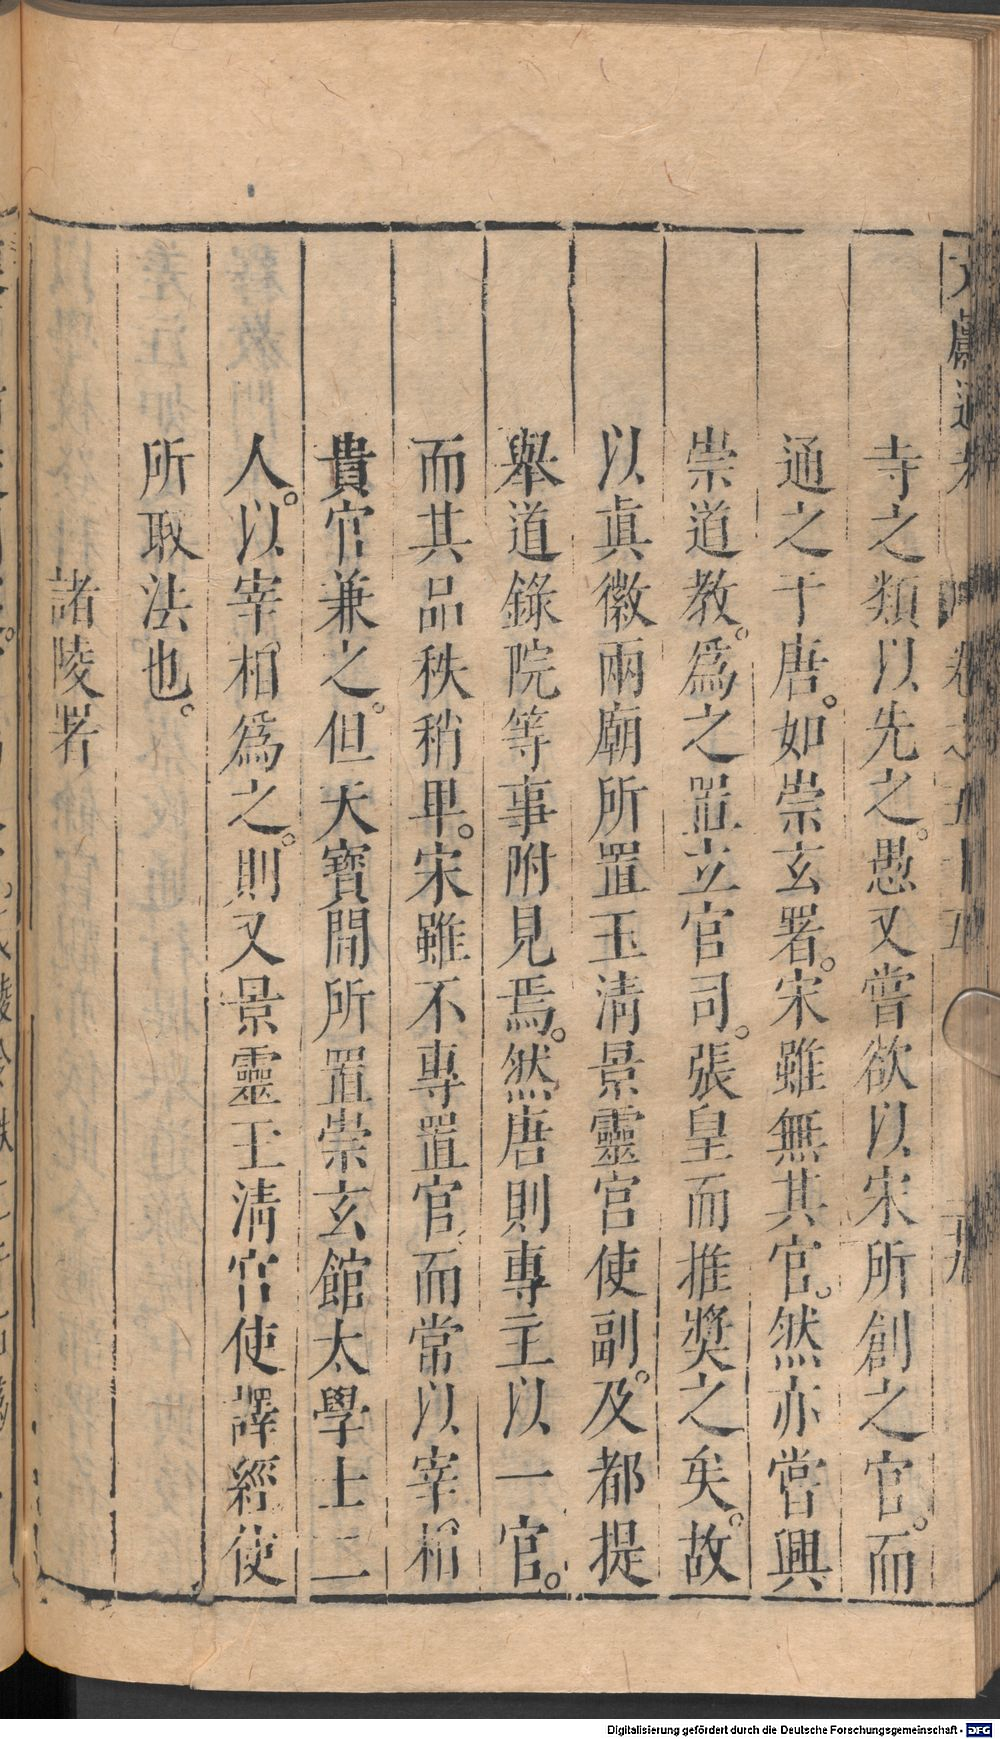 文獻通考 卷之五十五
寺之類以先之。愚又嘗欲以宋所創之官。而
通之于唐。如崇玄署。宋雖無其官。然亦嘗興
崇道教。爲之置立官司。張皇而推奬之矣。故
以眞徽兩廟所置玉清景靈宮使副。及都提
舉道錄院等事附見焉。然唐則專主以一官。
而其品秩稍卑。宋雖不專置官而常以宰相
貴官兼之。但天寶間所置崇玄館太學士二
人。以宰相爲之。則又景靈玉清宮使譯經使
所取法也。
諸陵署
Digitalisierung gefördert durch die Deutsche Forschungsgemeinschaft - DFG